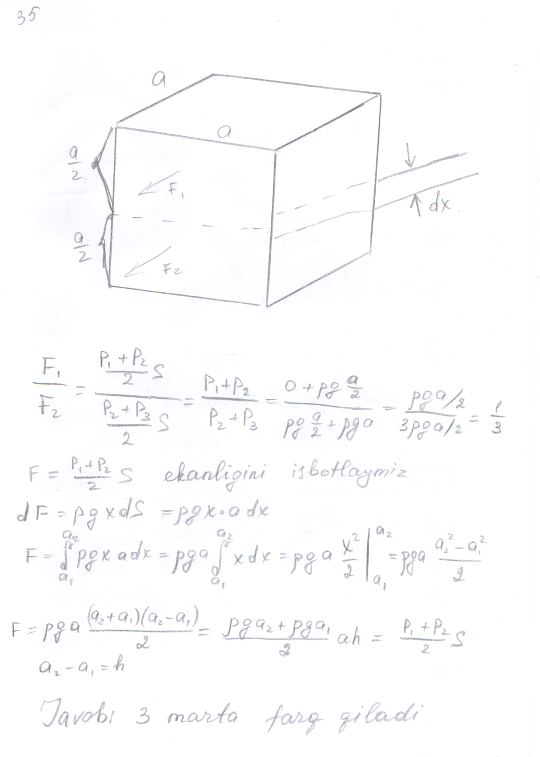 35
a
a
a/2
F₁
dx
a/2
F₂
F₁/F₂ = ((P₁+P₂)/2 S)/((P₂+P₃)/2 S) = (P₁+P₂)/(P₂+P₃) = (0+ρg a/2)/(ρg a/2 + ρga) = (ρga/2)/(3ρga/2) = 1/3
F = (P₁+P₂)/2 S ekanligini isbotlaymiz
dF = ρgxdS = ρgx·adx
F = ∫_{a₁}^{a₂} ρgxadx = ρga ∫_{a₁}^{a₂} xdx = ρga x²/2 |_{a₁}^{a₂} = ρga (a₂²-a₁²)/2
F = ρga (a₂+a₁)(a₂-a₁)/2 = (ρga₂+ρga₁)/2 ah = (P₁+P₂)/2 S
a₂-a₁=h
Javobi 3 marta farq qiladi